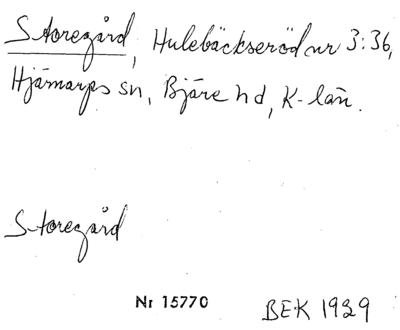 Storegård, Hulebäckseröd nr 3:36,
Hjärnarps sn, Bjäre hd, K-län.
Storegård
Nr 15770 BEK 1929